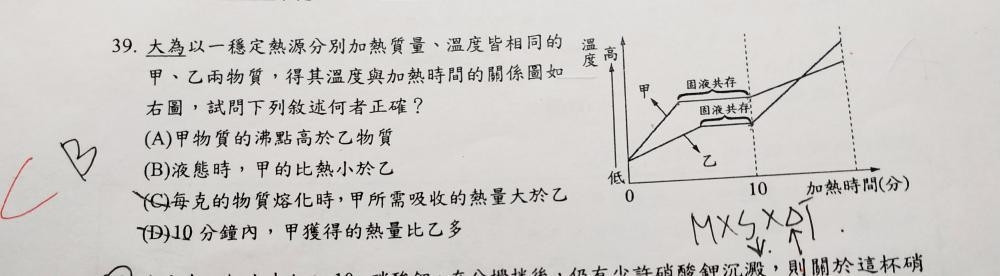 39. 大為以一穩定熱源分別加熱質量、溫度皆相同的
甲、乙兩物質，得其溫度與加熱時間的關係圖如
右圖，試問下列敘述何者正確？
(A)甲物質的沸點高於乙物質
(B)液態時，甲的比熱小於乙
(C)每克的物質熔化時，甲所需吸收的熱量大於乙
(D)10 分鐘內，甲獲得的熱量比乙多
B
溫度
高
甲
固液共存
固液共存
乙
低
0
10
加熱時間(分)
M×S×ΔT
仍有少許硝酸鉀沉澱，則關於這杯硝